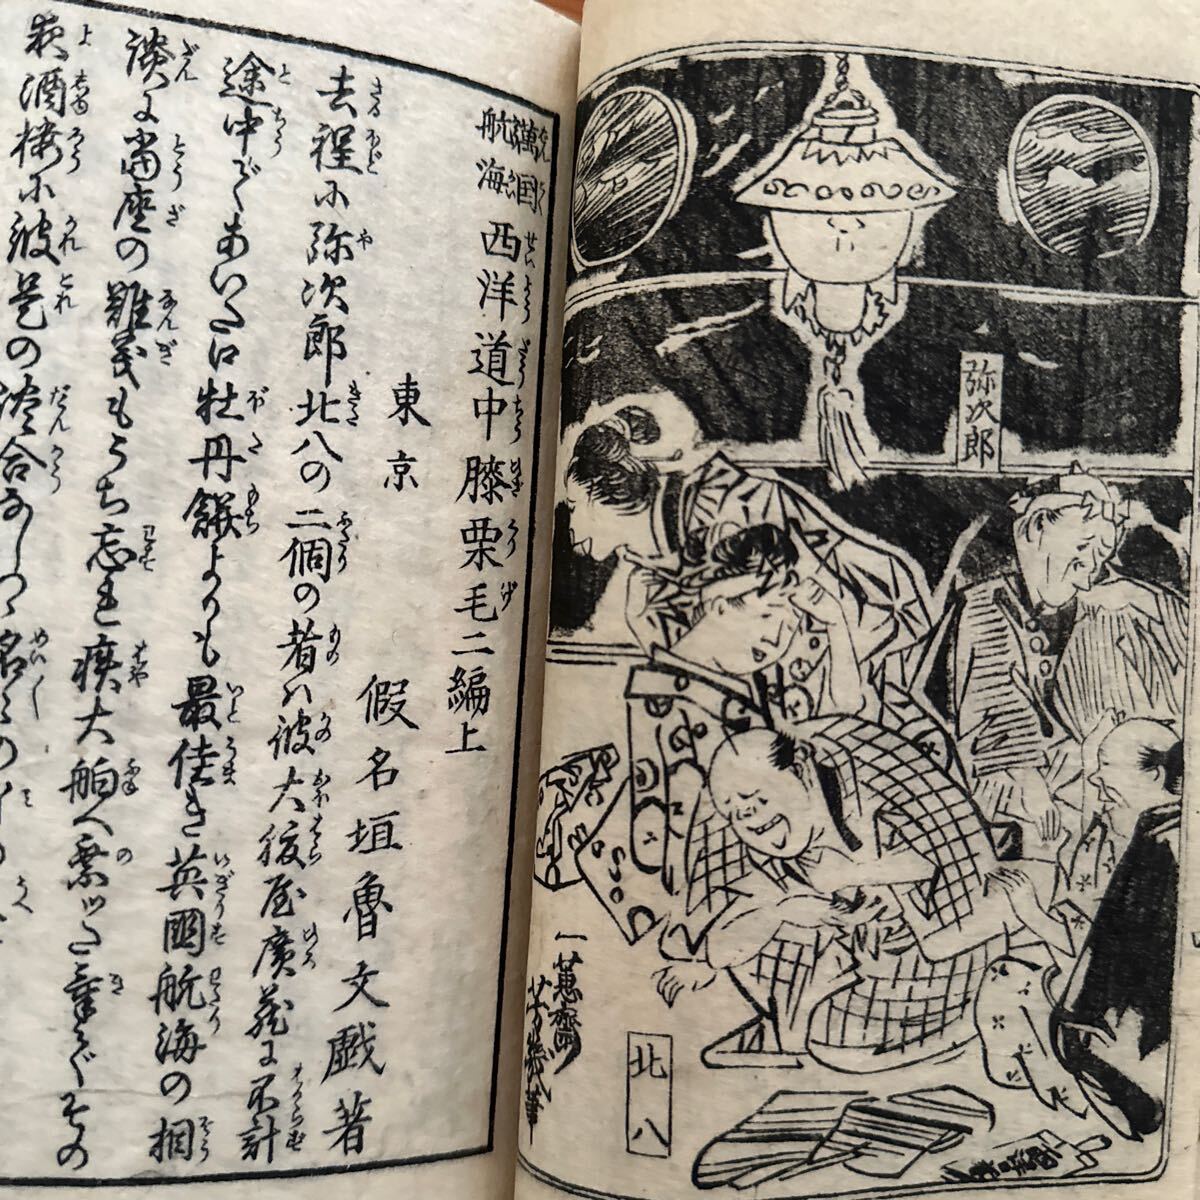 弥次郎
北八
一蕙齋芳幾筆
萬国航海 西洋道中膝栗毛二編上
東京 假名垣魯文戯著
去程に弥次郎北八の二個の者ハ彼大腹屋廣蔵に不計
途中であいた口牡丹餅よりも最佳き英國航海の相
談に當座の難義もうち忘れ疾大舶へ乗ッた氣でその
夜酒樓に彼是の談合なし